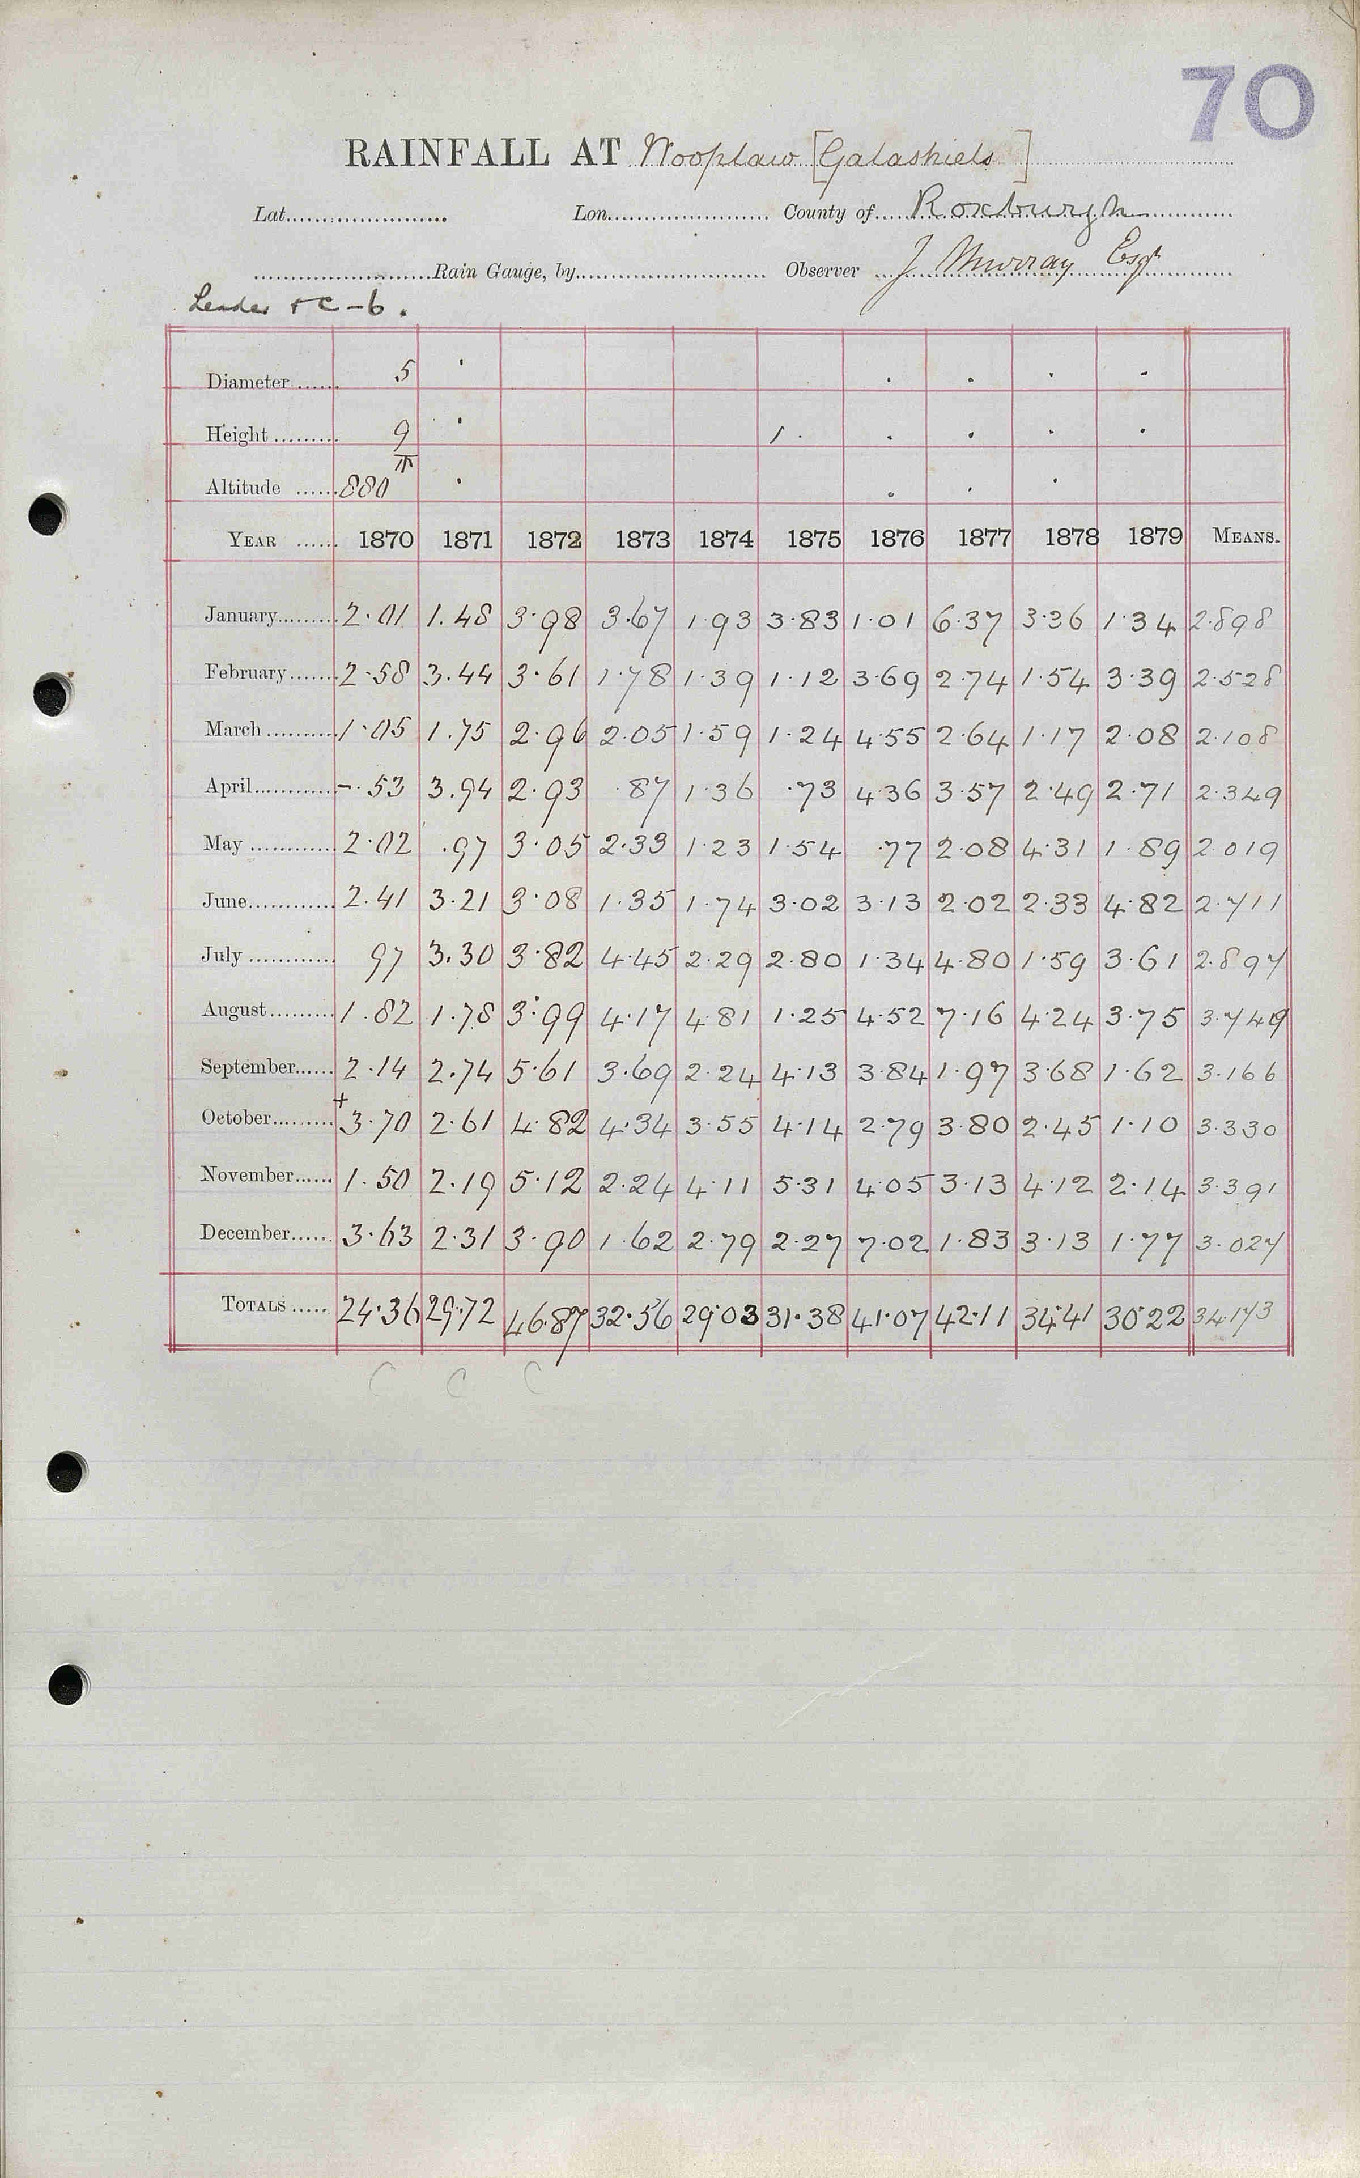 70
RAINFALL AT Wooplaw [Galashiels]
Lat. Lon. County of Roxburgh
Rain Gauge, by Observer J Murray Esqr
Leader & C-b.
Diameter 5
Height 9 1
Altitude 880
YEAR 1870 1871 1872 1873 1874 1875 1876 1877 1878 1879 MEANS.
January 2.01 1.48 3.98 3.67 1.93 3.83 1.01 6.37 3.36 1.34 2.898
February 2.58 3.44 3.61 1.78 1.39 1.12 3.69 2.74 1.54 3.39 2.528
March 1.05 1.75 2.96 2.05 1.59 1.24 4.55 2.64 1.17 2.08 2.108
April -.53 3.94 2.93 .87 1.36 .73 4.36 3.57 2.49 2.71 2.349
May 2.02 .97 3.05 2.33 1.23 1.54 .77 2.08 4.31 1.89 2.019
June 2.41 3.21 3.08 1.35 1.74 3.02 3.13 2.02 2.33 4.82 2.711
July 97 3.30 3.82 4.45 2.29 2.80 1.34 4.80 1.59 3.61 2.897
August 1.82 1.78 3.99 4.17 4.81 1.25 4.52 7.16 4.24 3.75 3.749
September 2.14 2.74 5.61 3.69 2.24 4.13 3.84 1.97 3.68 1.62 3.166
October +3.70 2.61 4.82 4.34 3.55 4.14 2.79 3.80 2.45 1.10 3.330
November 1.50 2.19 5.12 2.24 4.11 5.31 4.05 3.13 4.12 2.14 3.391
December 3.63 2.31 3.90 1.62 2.79 2.27 7.02 1.83 3.13 1.77 3.027
TOTALS 24.36 29.72 46.87 32.56 29.03 31.38 41.07 42.11 34.41 30.22 34.173
C C C